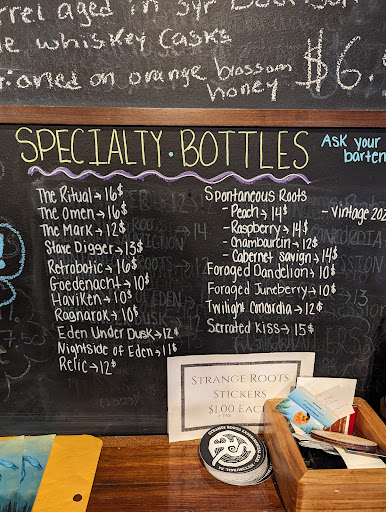 rrel aged in 5yr Bourbon
whiskey casks
on orange blossom
honey
$6.
SPECIALTY • BOTTLES
Ask your
barten
The Ritual → 16$
The Omen → 16$
The Mark → 12$
Stave Digger → 13$
Retrobotic → 16$
Goedenacht → 10$
Haviken → 10$
Ragnarok → 10$
Eden Under Dusk → 12$
Nightside of Eden → 11$
Relic → 12$
Spontaneous Roots
- Peach → 14$ - Vintage 202
- Raspberry → 14$
- Chambourcin → 12$
- Cabernet savign → 14$
Foraged Dandelion → 10$
Foraged Juneberry → 10$
Twilight Concordia → 12$
Serrated Kiss → 15$
STRANGE ROOTS
STICKERS
$1.00 EACH
+ TAX